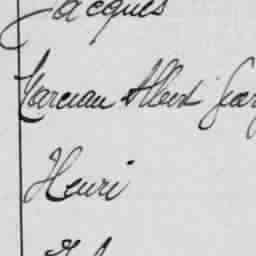 Jacques
Marceau Albert Geor
Henri